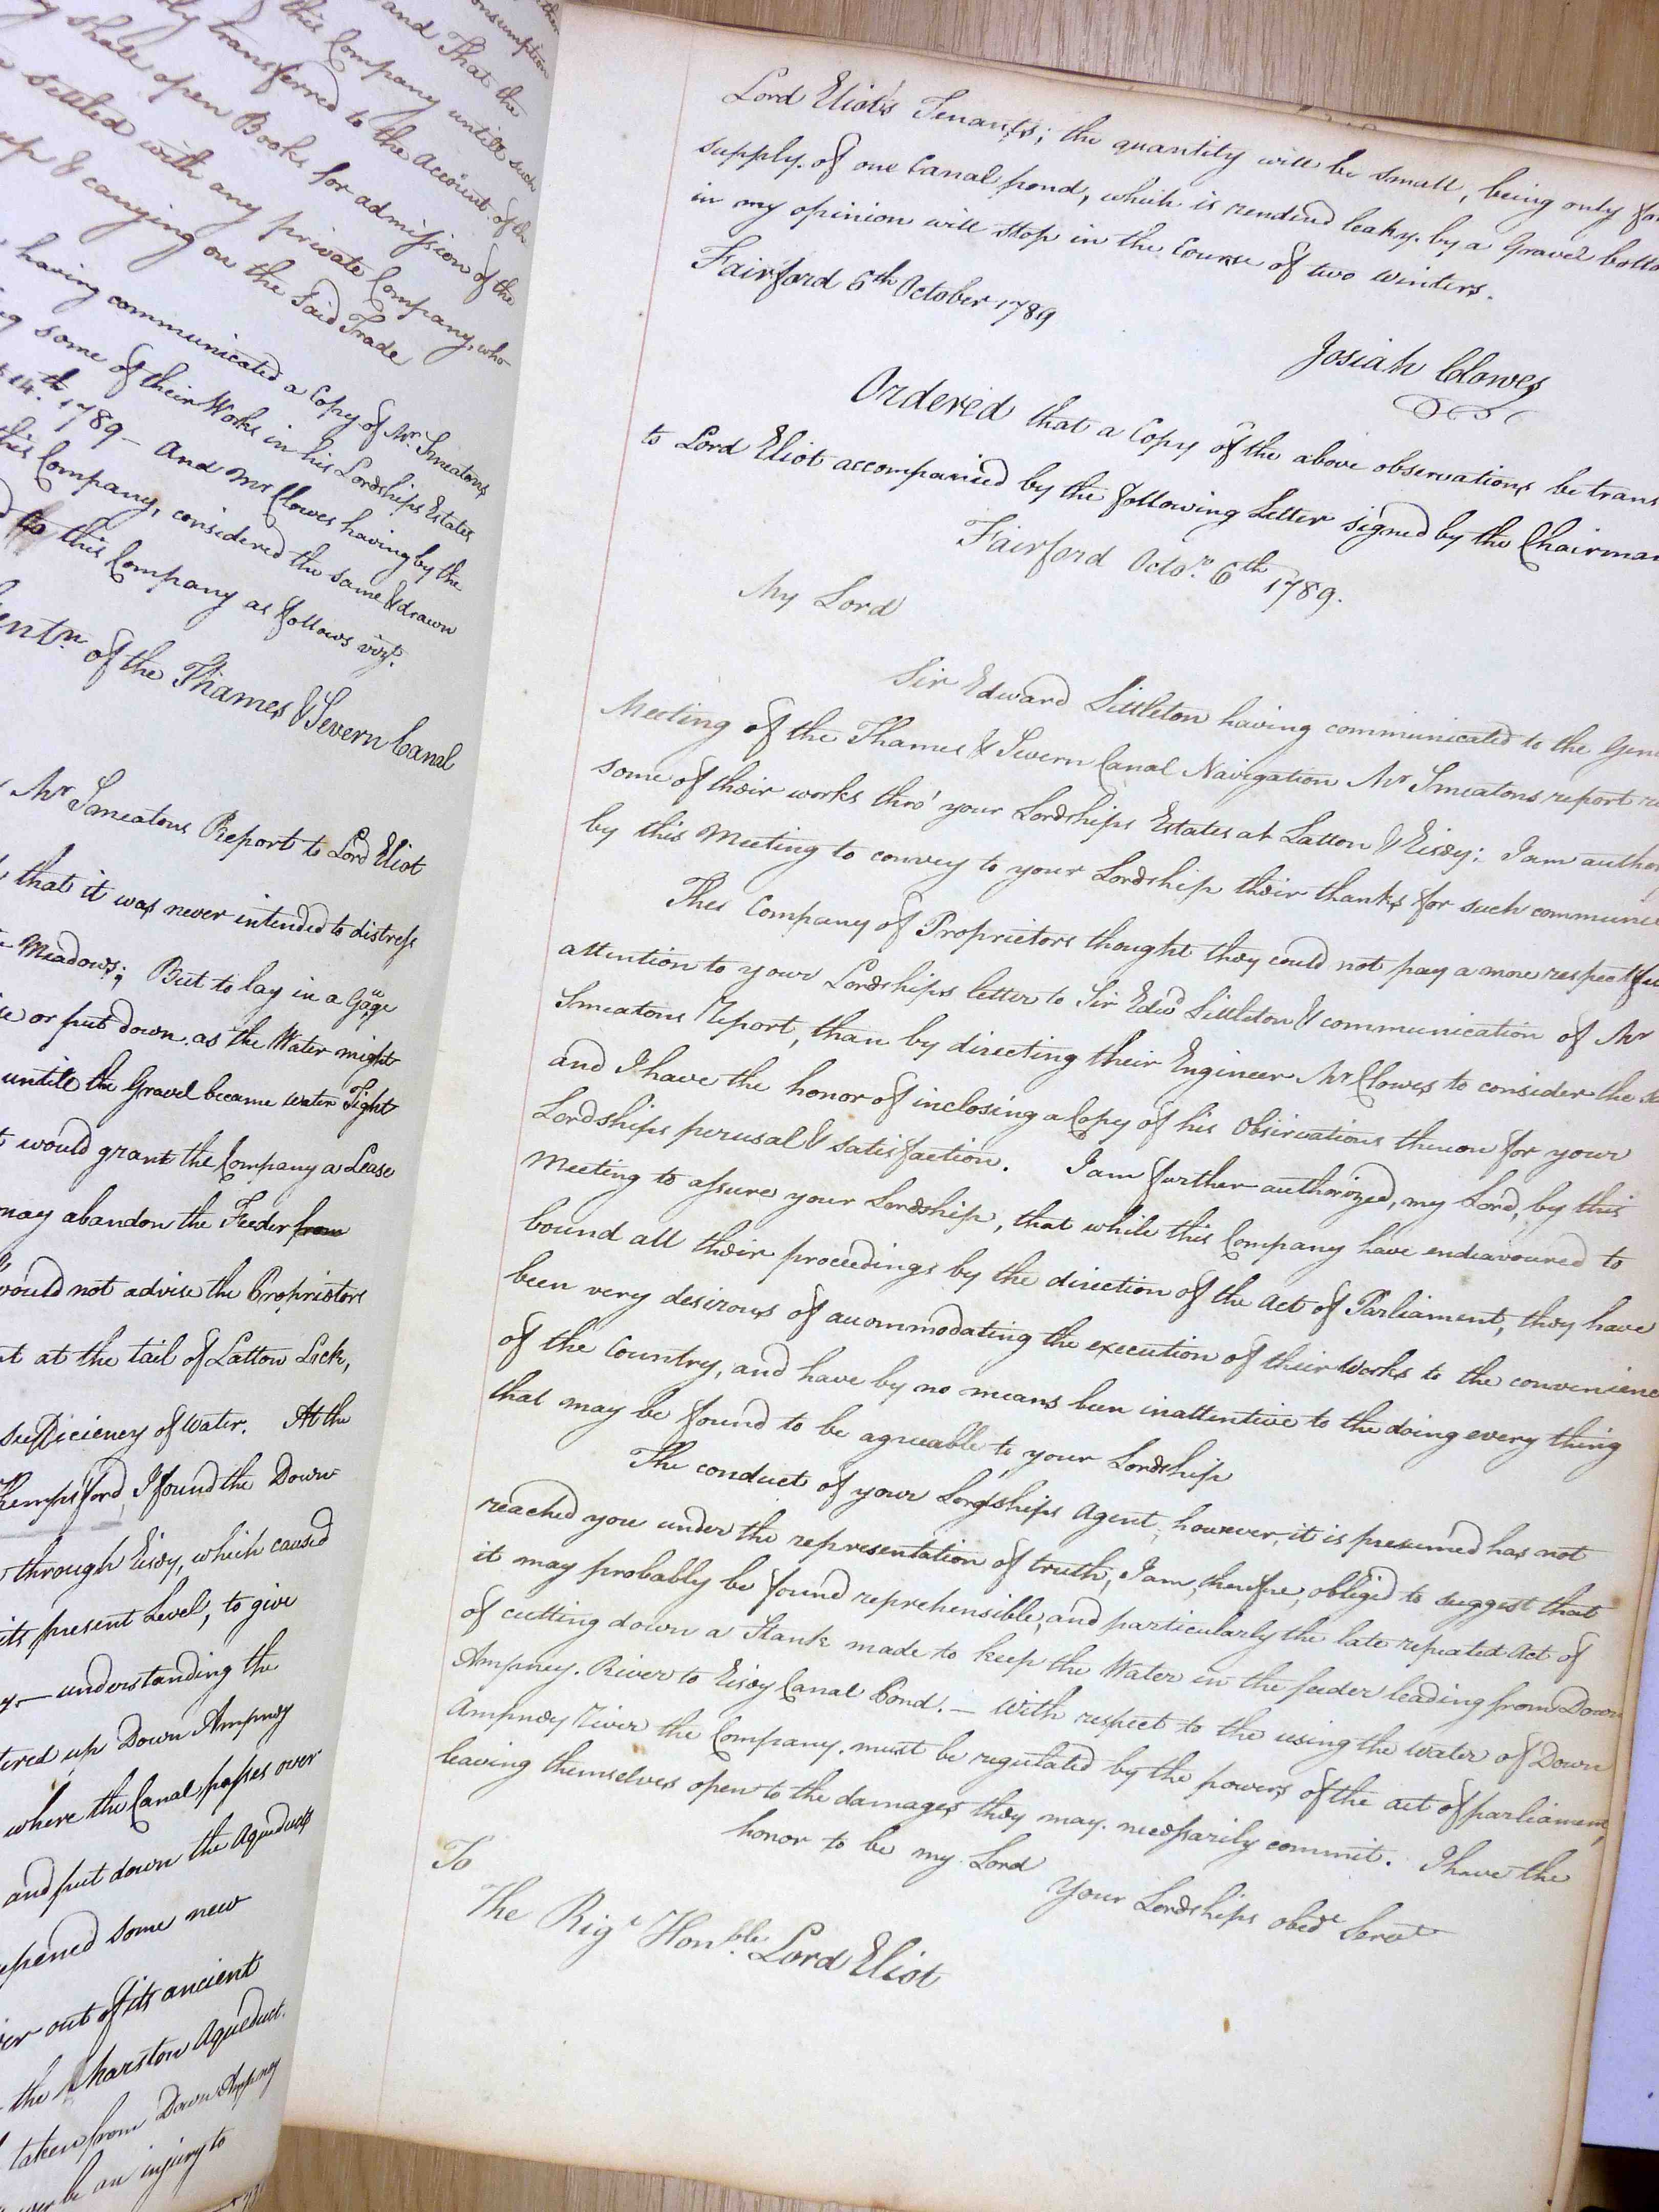 and That the
this Company untill such
transferred to the Account of the
shall open Books for admission of the
settled with any private Company, who
up & carrying on the said Trade
having communicated a Copy of Mr. Smeatons
some of their Works in his Lordships Estates
14th. 1789 - And Mr Clowes having by the
this Company, considered the same & drawn
to this Company as follows vizt.
of the Thames & Severn Canal
Mr Smeatons Report to Lord Eliot
that it was never intended to distress
Meadows; But to lay in a Gage
or put down as the Water might
untill the Gravel became water Tight
would grant the Company a Lease
may abandon the Feeder from
would not advise the Proprietors
at the tail of Latton Lock,
sufficiency of Water. At the
Kempsford, I found the Down
through Eisey, which caused
its present Level, to give
understanding the
up Down Ampney
where the Canal passes over
and put down the Aqueducts
opened some new
out of its ancient
the Marston Aqueduct.
taken from Down Ampney
be an injury to
Lord Eliot's Tenants; the quantity will be small, being only for
supply of one Canal pond, which is renderd leaky by a Gravel
in my opinion will stop in the Course of two Winters.
Fairford 5th October 1789
Josiah Clowes
Ordered that a Copy of the above observations be
to Lord Eliot accompanied by the following Letter signed by the Chairman
Fairford Octor. 6th 1789.
My Lord
Sir Edward Littleton having communicated to the
Meeting of the Thames & Severn Canal Navigation Mr Smeatons report
some of their works thro' your Lordships Estates at Latton & Eisey; I am
by this Meeting to convey to your Lordship their thanks for such
The Company of Proprietors thought they could not pay a more
attention to your Lordships letter to Sir Edwd Littleton & communication of Mr
Smeatons Report, than by directing their Engineer Mr Clowes to consider the
and I have the honor of inclosing a Copy of his Observations thereon for your
Lordships perusal & satisfaction. I am further authorized, my Lord, by this
Meeting to assure your Lordship, that while this Company have endeavoured to
bound all their proceedings by the direction of the Act of Parliament, they have
been very desirous of accommodating the execution of their Works to the
of the Country, and have by no means been inattentive to the doing every thing
that may be found to be agreeable to your Lordship
The conduct of your Lordships Agent, however, it is presumed has not
reached you under the representation of truth, I am, therefore, obliged to suggest that
it may probably be found reprehensible, and particularly the late repeated Act of
of cutting down a Stank made to keep the Water in the feeder leading from Down
Ampney River to Eisey Canal Pond. — With respect to the using the Water of Down
Ampney River the Company must be regulated by the powers of the act of parliament,
leaving themselves open to the damages they may necessarily commit. I have the
honor to be my Lord
Your Lordships obedt Servt
To
The Rigt Honble. Lord Eliot